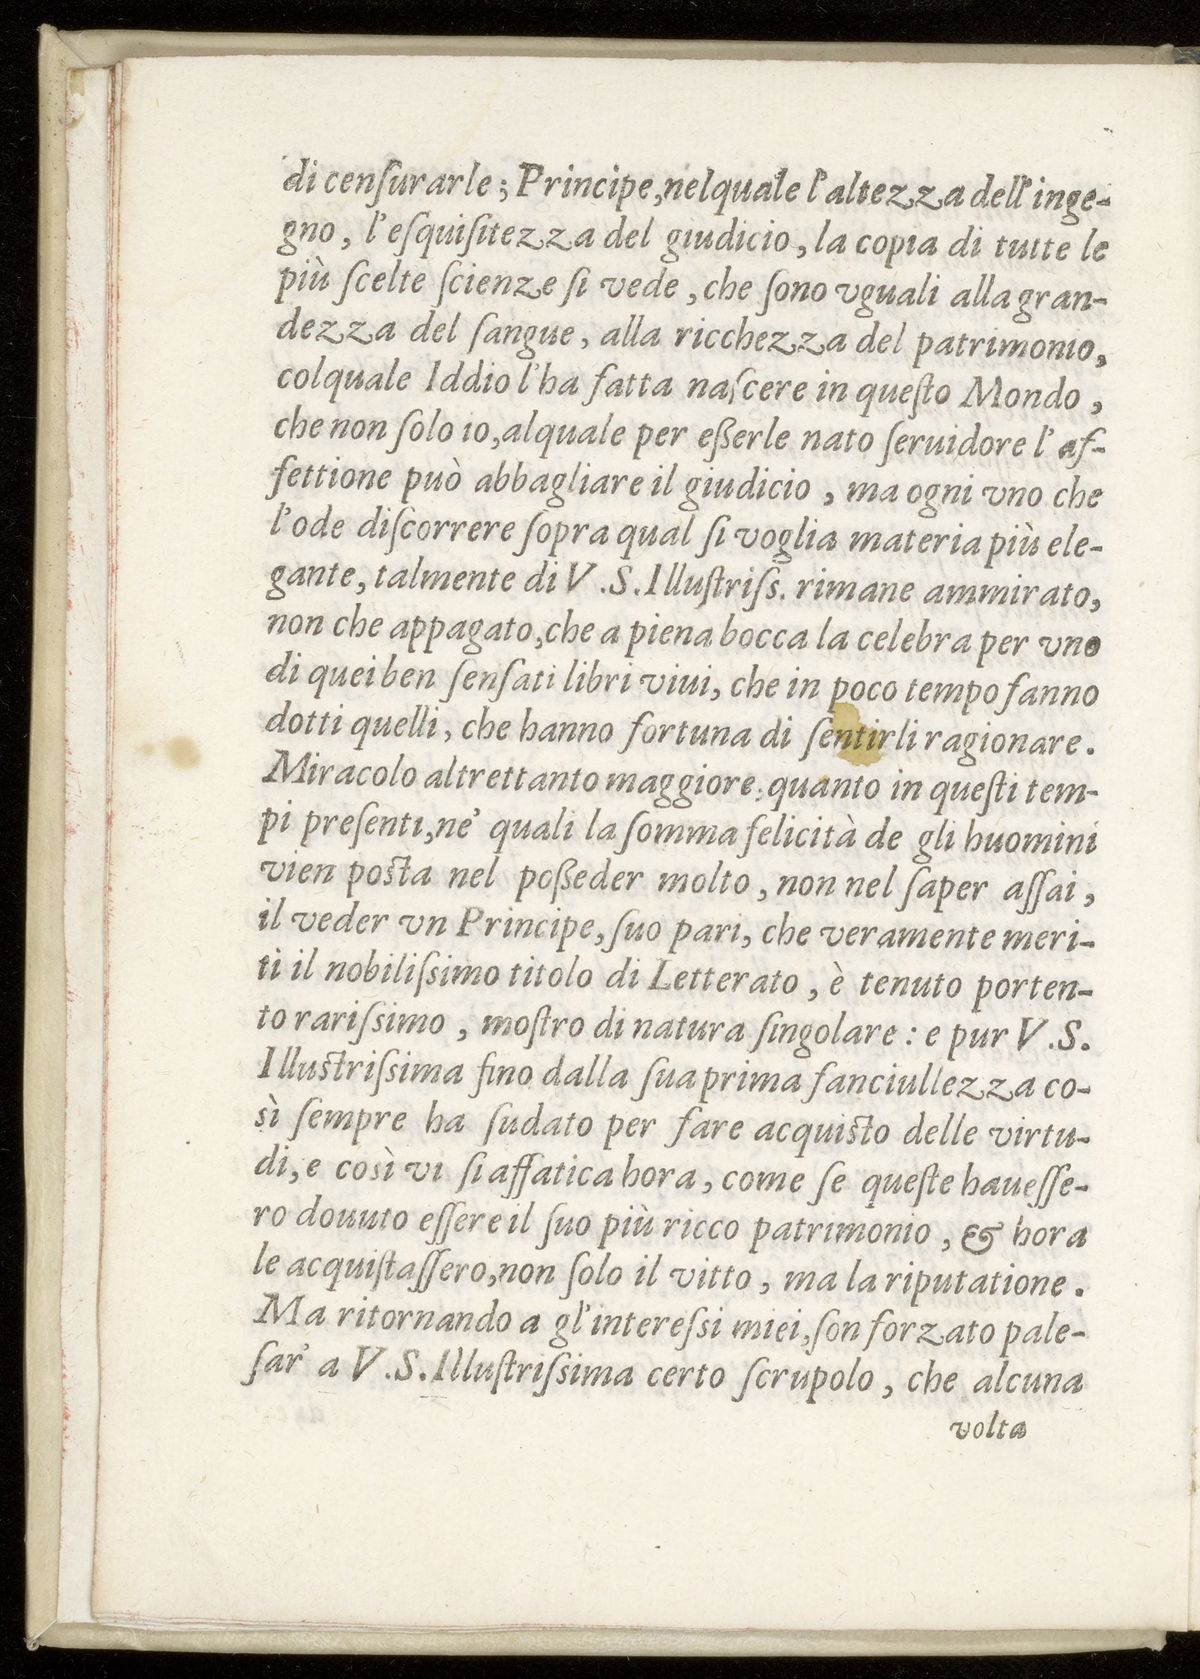 di cenſurarle; Principe, nelquale l'altezza dell'inge-
gno, l'eſquiſitezza del giudicio, la copia di tutte le
più ſcelte ſcienze ſi vede, che ſono vguali alla gran-
dezza del ſangue, alla ricchezza del patrimonio,
colquale Iddio l'ha fatta naſcere in queſto Mondo,
che non ſolo io, alquale per eßerle nato ſeruidore l'af-
fettione può abbagliare il giudicio, ma ogni vno che
l'ode diſcorrere ſopra qual ſi voglia materia più ele-
gante, talmente di V.S. Illuſtriſs. rimane ammirato,
non che appagato, che a piena bocca la celebra per vno
di quei ben ſenſati libri viui, che in poco tempo fanno
dotti quelli, che hanno fortuna di ſentirli ragionare.
Miracolo altrettanto maggiore: quanto in queſti tem-
pi preſenti, ne' quali la ſomma felicità de gli huomini
vien poſta nel poßeder molto, non nel ſaper aſſai,
il veder vn Principe, ſuo pari, che veramente meri-
ti il nobiliſsimo titolo di Letterato, è tenuto porten-
to rariſsimo, moſtro di natura ſingolare: e pur V.S.
Illuſtriſsima fino dalla ſua prima fanciullezza co-
sì ſempre ha ſudato per fare acquiſto delle virtu-
di, e così vi ſi affatica hora, come ſe queſte haueſſe-
ro douuto eſſere il ſuo più ricco patrimonio, & hora
le acquiſtaſſero, non ſolo il vitto, ma la riputatione.
Ma ritornando a gl'intereſsi miei, ſon forzato pale-
ſar' a V.S. Illuſtriſsima certo ſcrupolo, che alcuna
volta